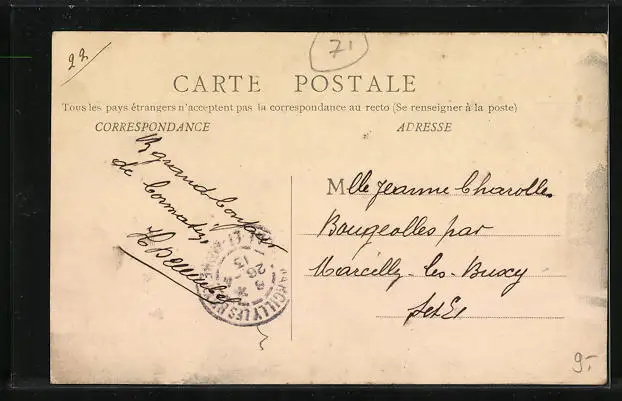 22
71
CARTE POSTALE
Tous les pays étrangers n'acceptent pas la correspondance au recto (Se renseigner à la poste)
CORRESPONDANCE
ADRESSE
grand bonjour
de Cormatin,
Mlle Jeanne Charolles
Bougeolles par
Marcilly-les-Buxy
S et L
MARCILLY LES
26
13
9.-